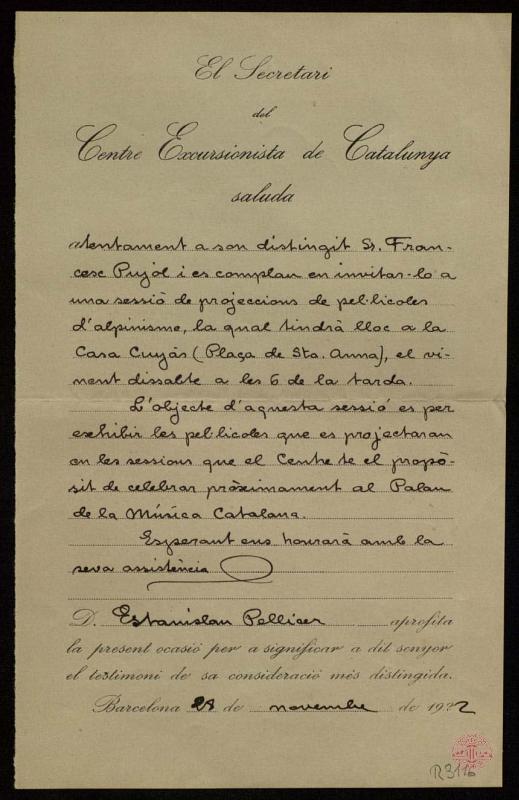 El Secretari
del
Centre Excursionista de Catalunya
saluda
atentament a son distingit Sr. Fran-
cesc Pujól i es complau en invitar-lo a
una sessió de projeccions de pel·licoles
d'alpinisme, la qual tindrà lloc a la
Casa Cuyàs (Plaça de Sta. Anna), el vi-
nent dissabte a les 6 de la tarda.
L'objecte d'aquesta sessió es per
exhibir les pel·licoles que es projectaran
en les sessions que el Centre te el propò-
sit de celebrar pròximament al Palau
de la Música Catalana.
Esperant ens honrarà amb la
seva assistència
D. Estanislau Pellicer aprofita
la present ocasió per a significar a dit senyor
el testimoni de sa consideració més distingida.
Barcelona de novembre de 1922
R3116